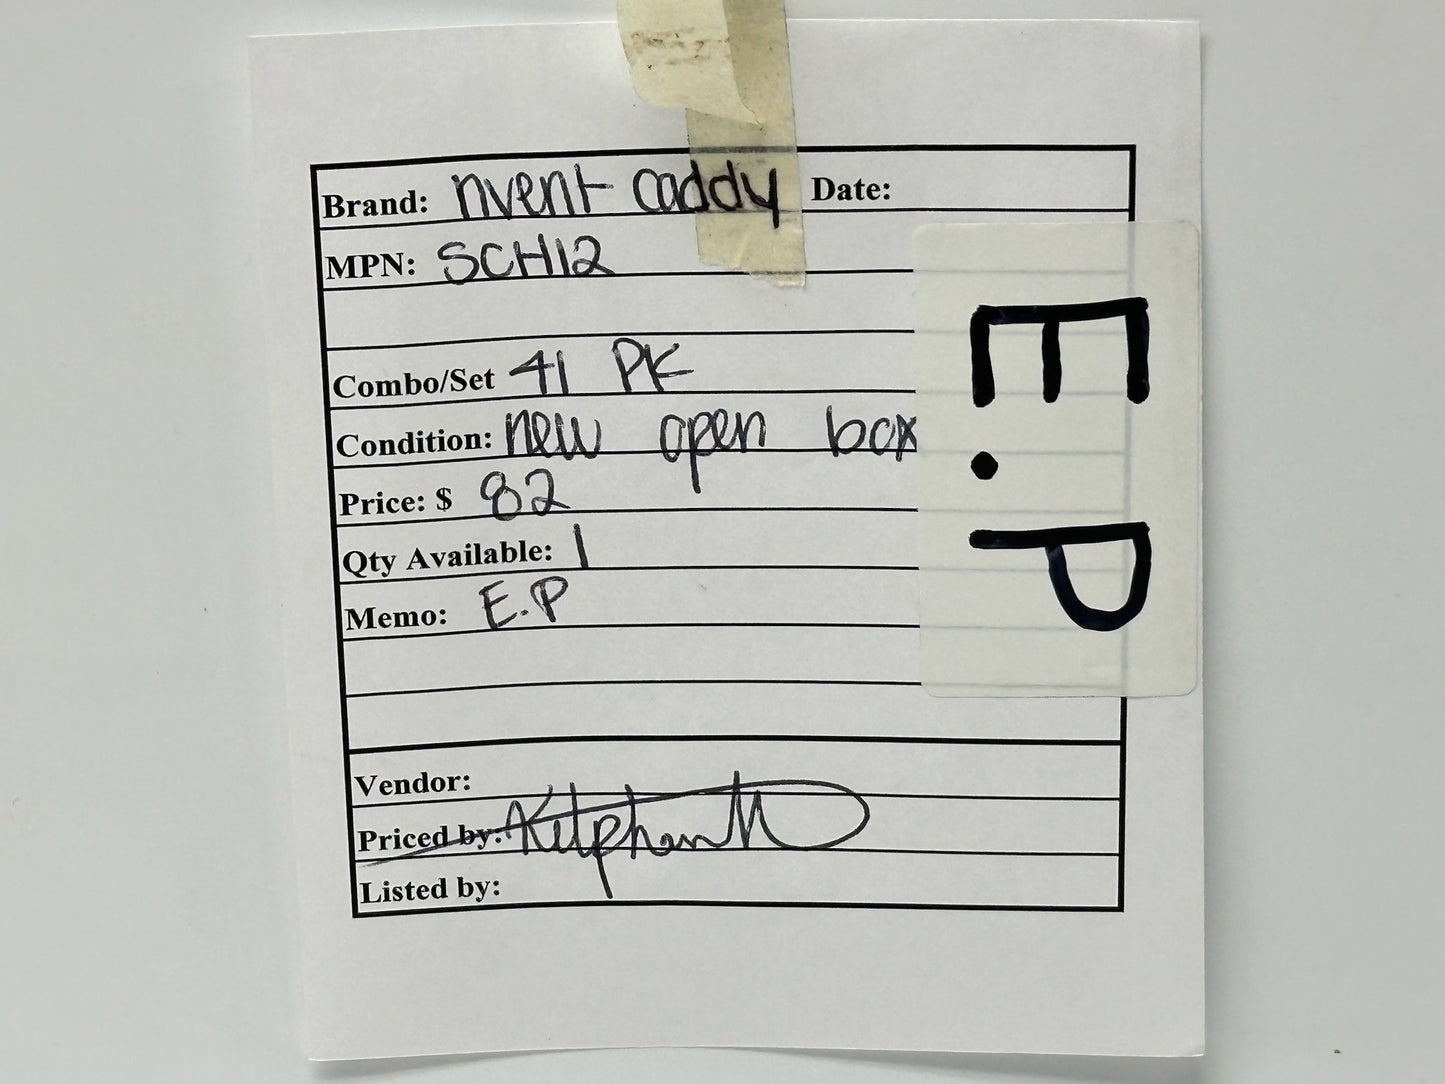 Brand: nvent caddy Date:
MPN: SCH12
Combo/Set 41 PK
Condition: new open box
Price: $ 82
Qty Available: 1
Memo: E.P
Vendor:
Priced by:
Listed by:
E.P